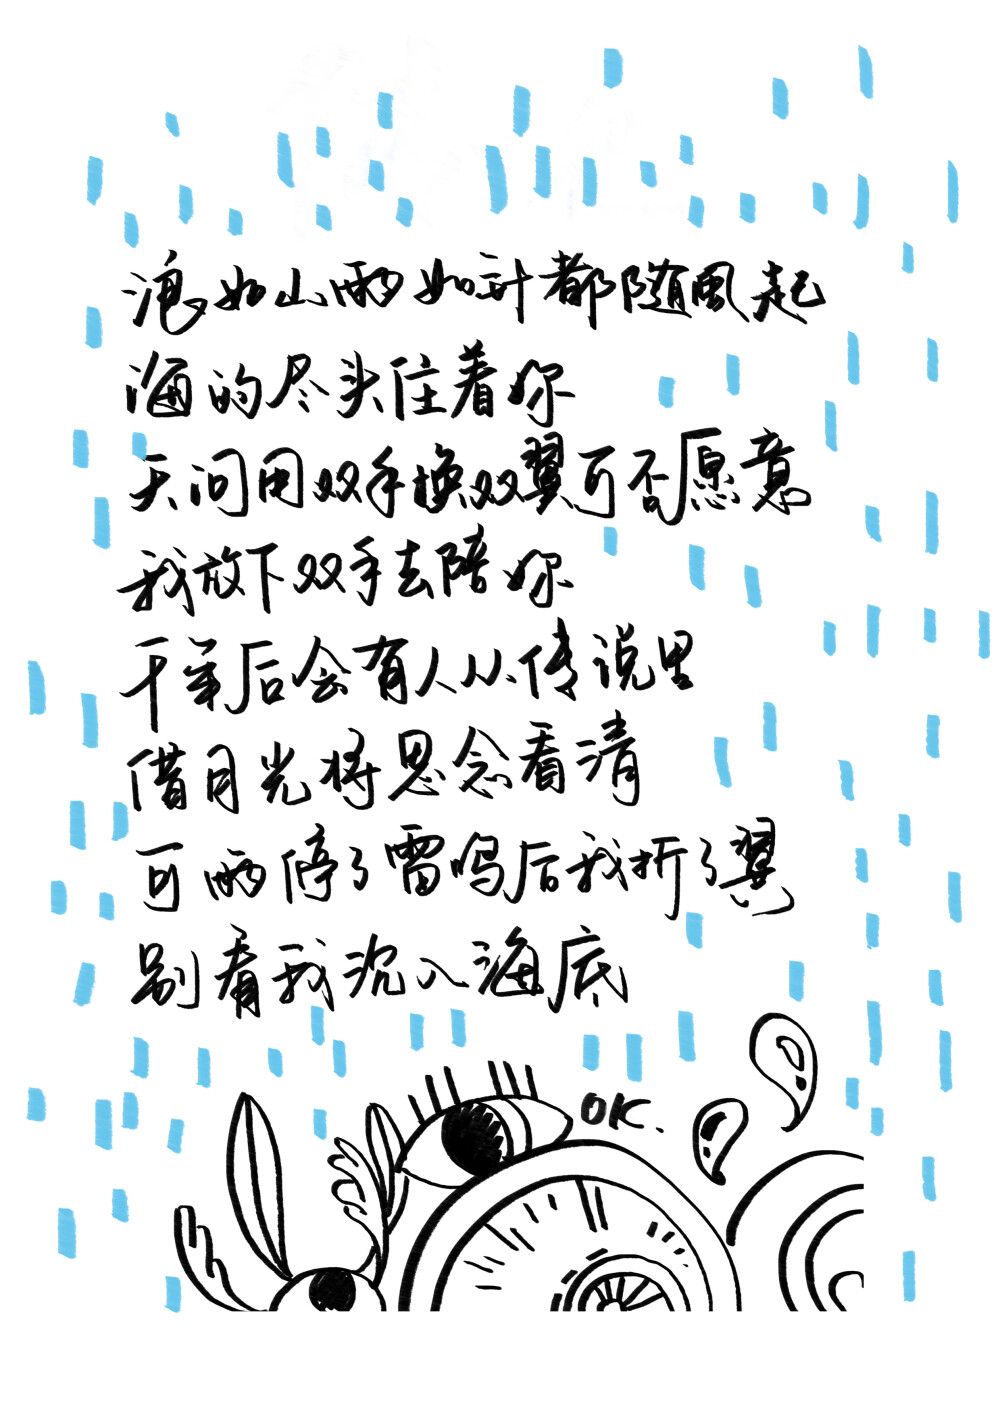 浪如山雨如针都随風起
海的尽头住着你
天问用双手换双翼可否愿意
我放下双手去陪你
千年后会有人从传说里
借月光将思念看清
可雨停了雷鸣后我折了翼
别看我沉入海底
OK.